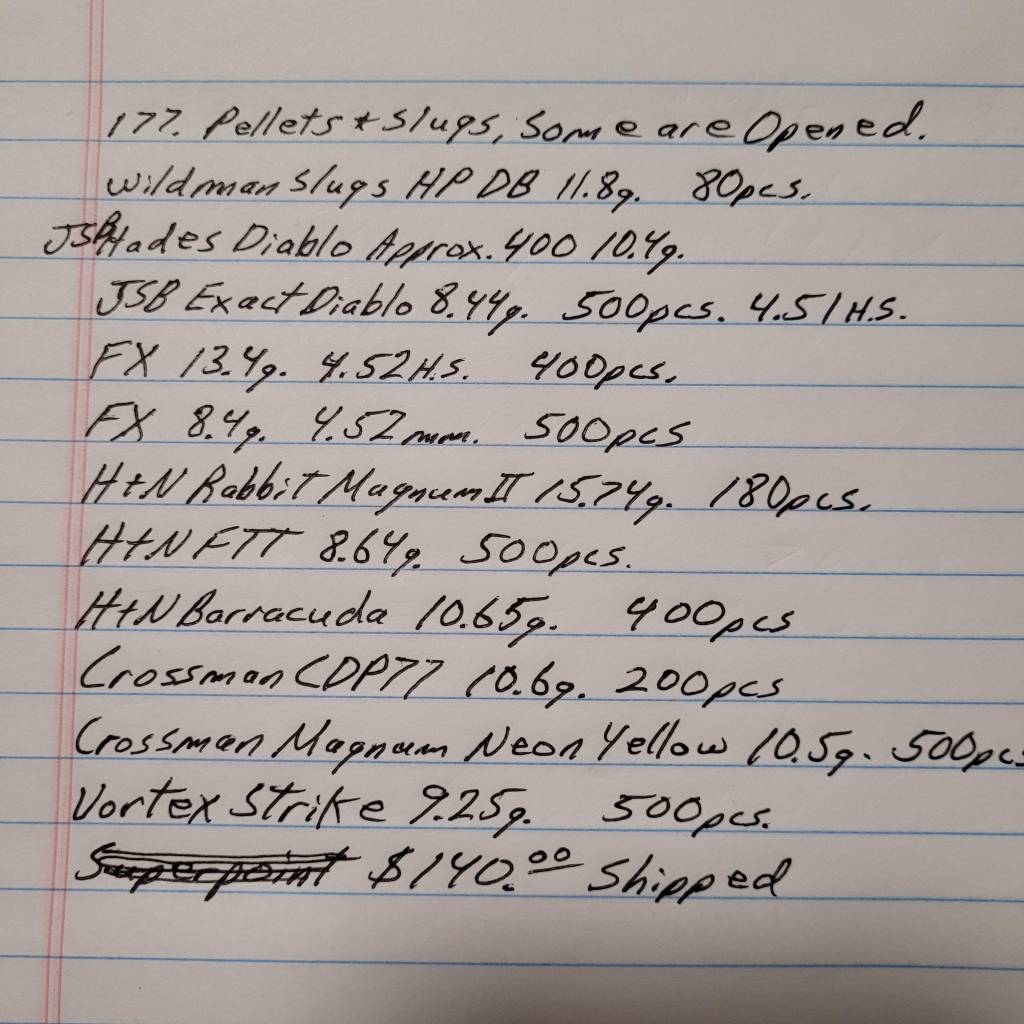 177. Pellets + Slugs, Some are Opened.
Wildman Slugs HP DB 11.8g. 80pcs.
JSB Hades Diablo Approx. 400 10.4g.
JSB Exact Diablo 8.44g. 500pcs. 4.51 H.S.
FX 13.4g. 4.52 H.S. 400pcs.
FX 8.4g. 4.52 mm. 500pcs
H+N Rabbit Magnum II 15.74g. 180pcs.
H+N FTT 8.64g. 500pcs.
H+N Barracuda 10.65g. 400pcs
Crossman CDP77 10.6g. 200pcs
Crossman Magnum Neon Yellow 10.5g. 500pcs
Vortex Strike 9.25g. 500pcs.
Superpoint $140.00 Shipped